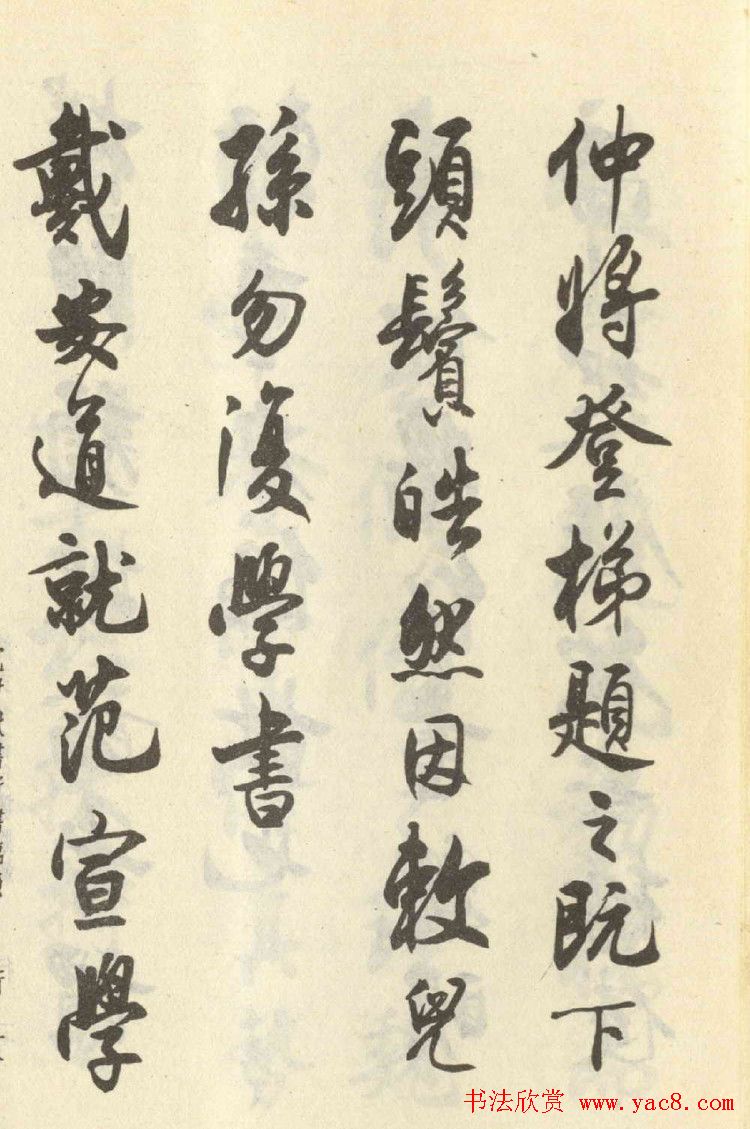 仲將登梯題之既下
頭鬢皓然因敕兒
孫勿復學書
戴安道就范宣學
书法欣赏 www.yac8.com